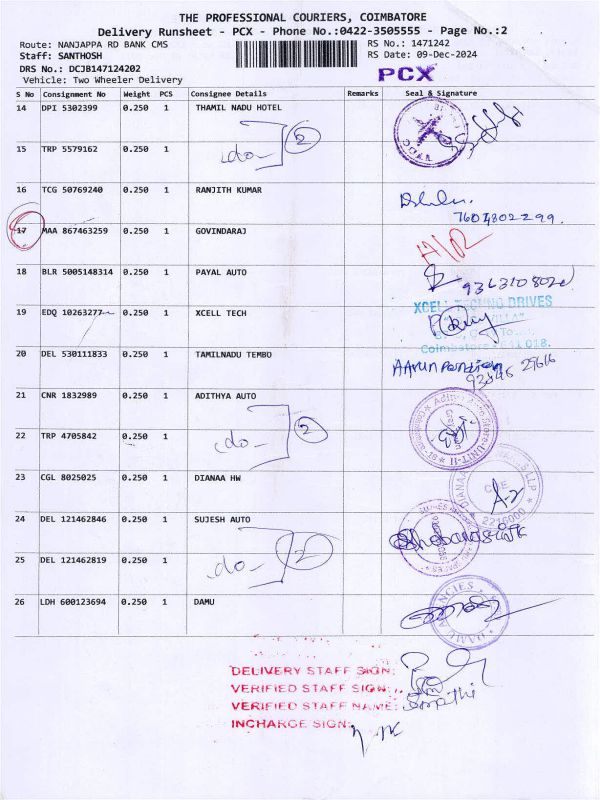 THE PROFESSIONAL COURIERS, COIMBATORE
Delivery Runsheet - PCX - Phone No.:0422-3505555 - Page No.:2
Route: NANJAPPA RD BANK CMS RS No.: 1471242
Staff: SANTHOSH RS Date: 09-Dec-2024
DRS No.: DCJB147124202
Vehicle: Two Wheeler Delivery
PCX
S No Consignment No Weight PCS Consignee Details Remarks Seal & Signature
14 DPI 5302399 0.250 1 THAMIL NADU HOTEL
do 2
15 TRP 5579162 0.250 1
16 TCG 50769240 0.250 1 RANJITH KUMAR
7604802299.
17 MAA 867463259 0.250 1 GOVINDARAJ
18 BLR 5005148314 0.250 1 PAYAL AUTO
XCELL TECHNO DRIVES
19 EDQ 10263277 0.250 1 XCELL TECH
Coimbatore - 641 018.
20 DEL 530111833 0.250 1 TAMILNADU TEMBO
Arun Pandian
93845 29616
21 CNR 1832989 0.250 1 ADITHYA AUTO
do 2
22 TRP 4705842 0.250 1
23 CGL 8025025 0.250 1 DIANAA HW
24 DEL 121462846 0.250 1 SUJESH AUTO
do 2
25 DEL 121462819 0.250 1
26 LDH 600123694 0.250 1 DAMU
DELIVERY STAFF SIGN:
VERIFIED STAFF SIGN:
VERIFIED STAFF NAME:
INCHARGE SIGN: